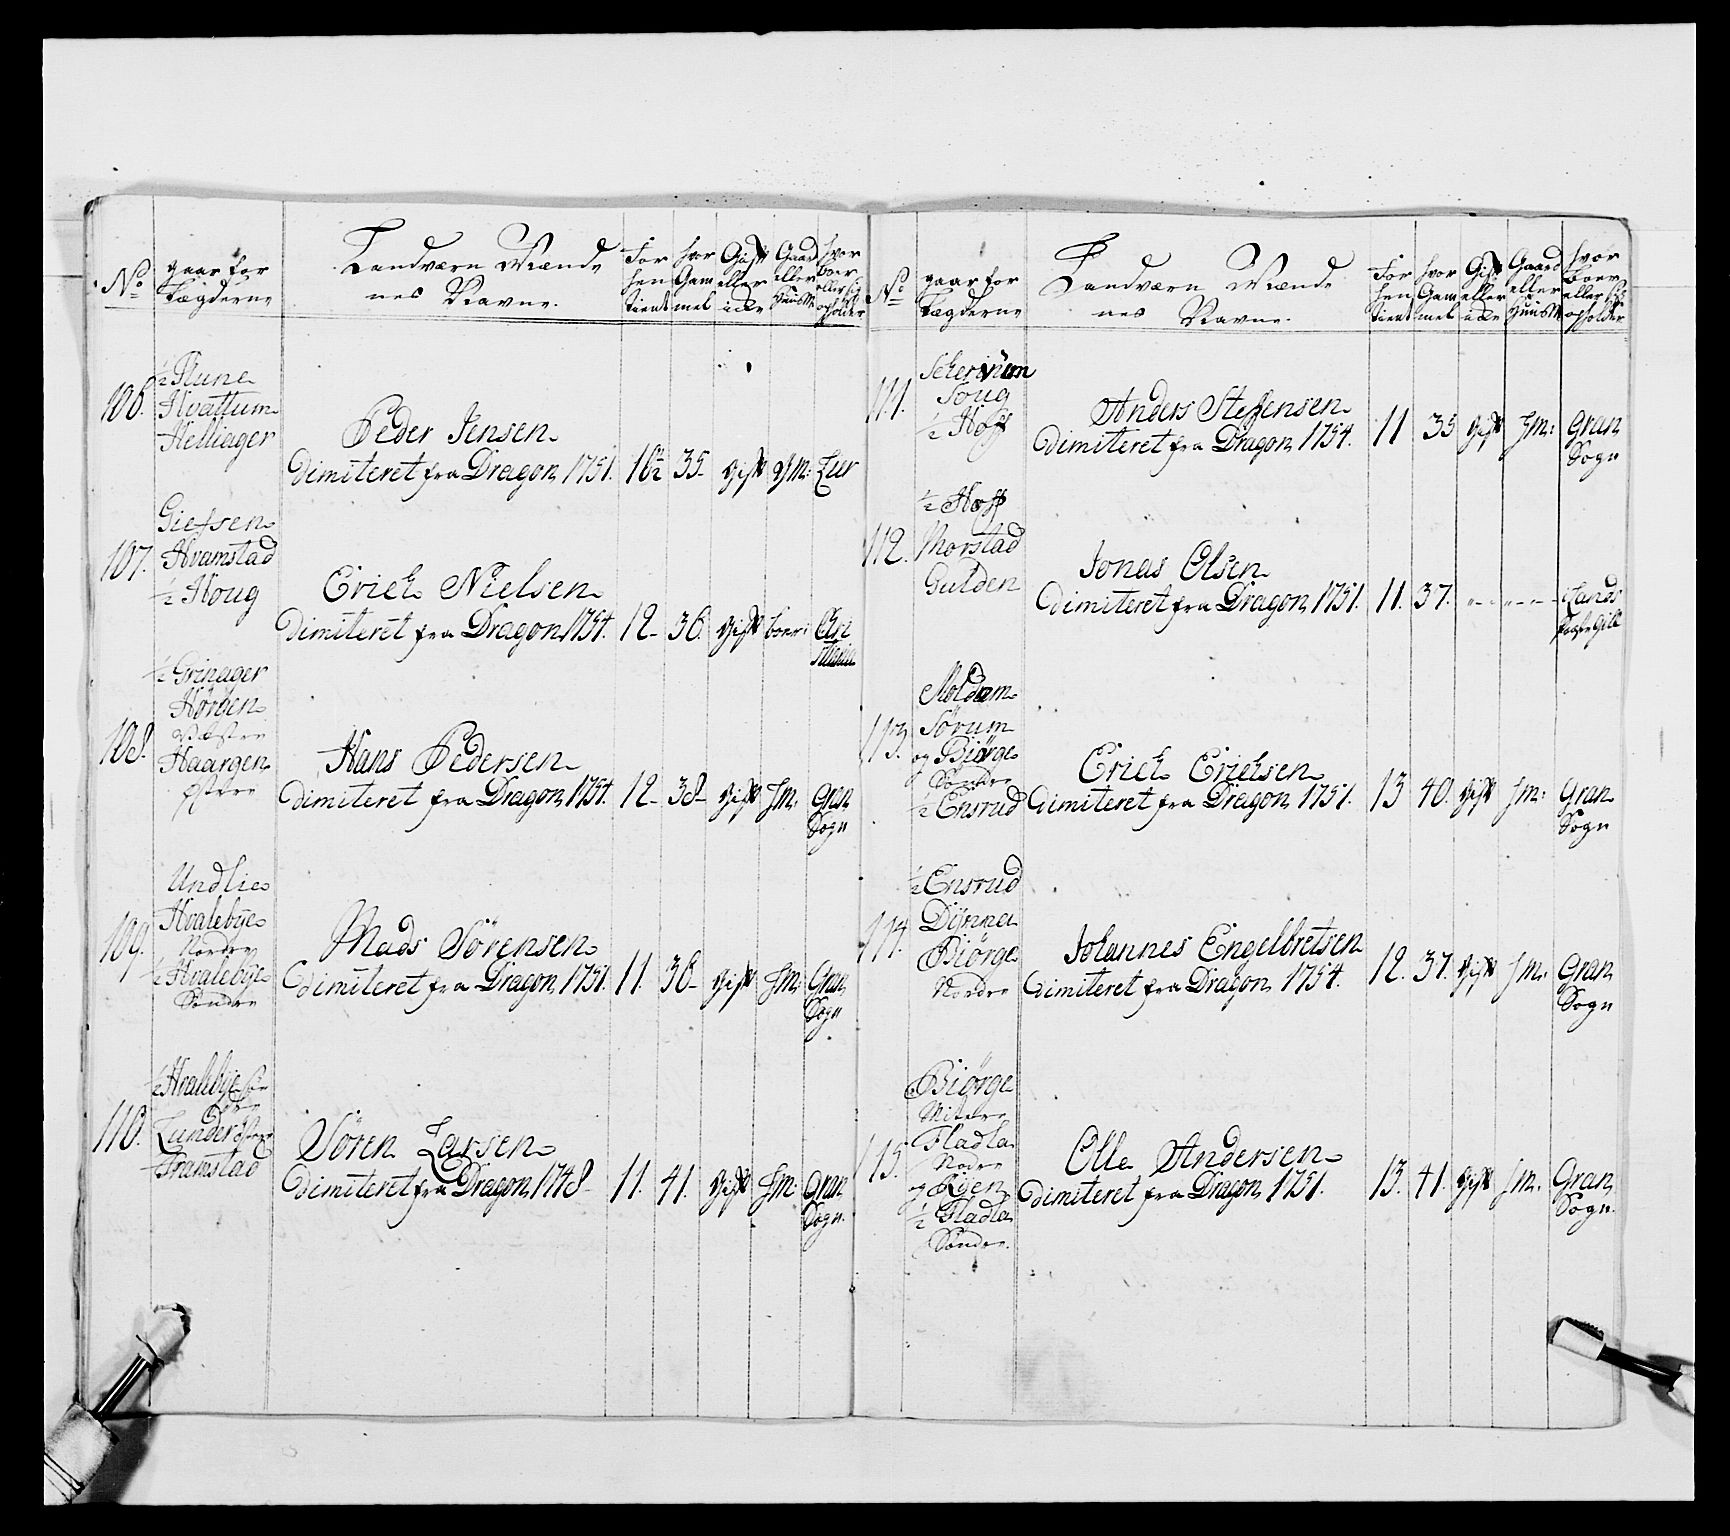 No
gaar for
Lægderne
Landværn Mænde
nes Navne.
For
hen
tient
hvor
Gam
mel
Gift
eller
icke
Gaard
eller
HuusM
hvor
boer
eller sig
opholder
106.
½ Flune
Hvattum
Helliager
Peder Jensen
Dimiteret fra Dragon 1751. 10½ 35 gift gM: Lier
107.
Giefsen
Hvamstad
½ Houg
Erich Nielsen
Dimiteret fra Dragon 1754. 12 36. gift boer: Chri
stiania
108.
½ Grinager
Hørgen
Væstre
Haargen
østre
Hans Pedersen
Dimiteret fra Dragon 1754. 12 38 gift Hm: Gran
Sogn
109.
Undlie
Hvalebye
Nordre
½ Hvalebye
Søndre
Mads Sørensen
Dimiteret fra Dragon 1751. 11. 36 gift Hm: Gran
Sogn
110.
½ Hvalebye Søn
dre
Lunder østre
Framstad
Søren Larsen
Dimiteret fra Dragon 1748 11. 41. gift Hm Gran
Sogn.
No
gaar for
Lægderne
Landværn Mænde
nes Navne.
For
hen
tient
hvor
Gam
mel
Gift
eller
icke
Gaard
eller
HuusM
hvor
boer
eller sig
opholder
111.
Schervum
Houg
½ Hoff
Anders Steffensen
Dimiteret fra Dragon 1754. 11 35 gift Hm: Gran
Sogn
112.
½ Hoff
Morstad
Gulden
Jonas Olsen
Dimiteret fra Dragon 1751. 11. 37. Lands
Præste Gild
113.
Moldum
Sørum
og Biørge
Søndre
½ Ensrud
Erich Erichsen
Dimiteret fra Dragon 1751. 13 40. gift Hm: Gran
Sogn
114.
½ Ensrud
Dÿnna
Biørge
Nordre
Johannes Engelbretsen
Dimiteret fra Dragon 1754. 12. 37. gift Hm: Gran
Sogn
115.
Biørge
Mitlre
Fladla
Nodre
og Røen
½ Fladla
Søndre.
Olle Andersen
Dimiteret fra Dragon 1751. 13. 41. gift Hm. Gran
Sogn.